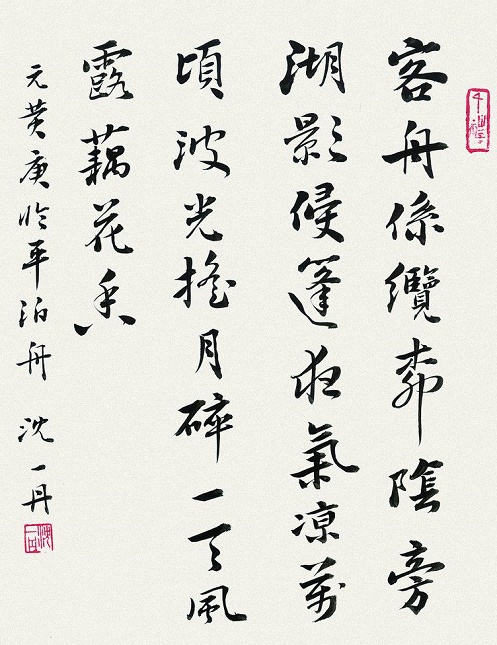 客舟係纜桺陰旁
湖影侵篷夜氣涼萬
頃波光搖月碎一天風
露藕花香
元黃庚临平泊舟 沈一丹